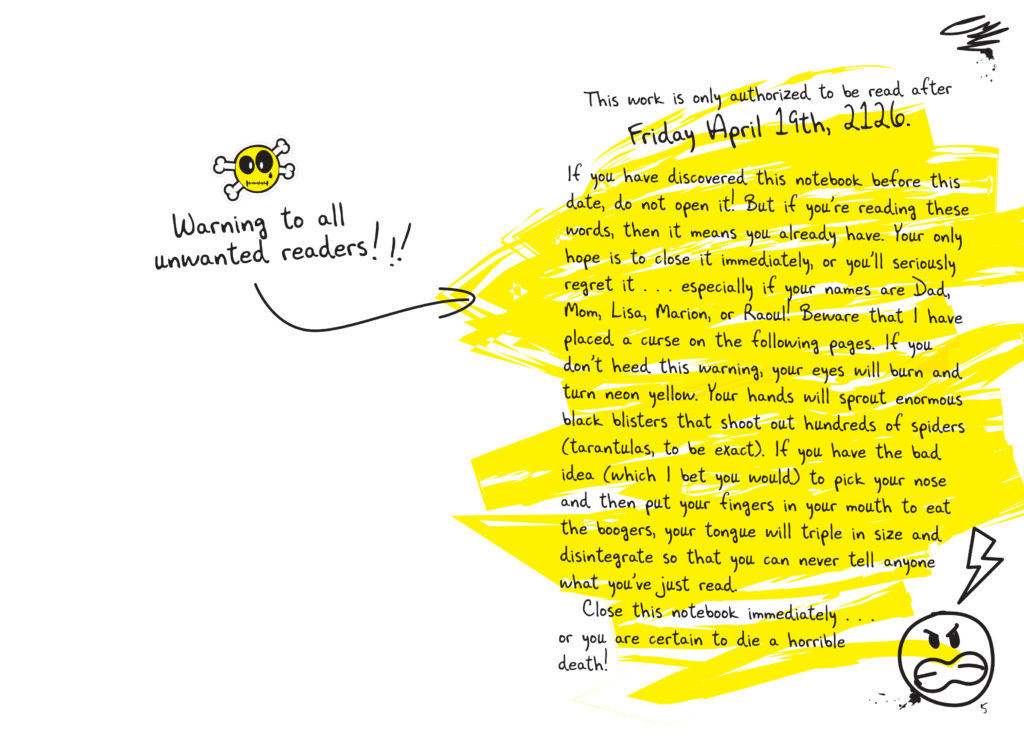 Warning to all
unwanted readers!!!
This work is only authorized to be read after
Friday April 19th, 2126.
If you have discovered this notebook before this
date, do not open it! But if you're reading these
words, then it means you already have. Your only
hope is to close it immediately, or you'll seriously
regret it . . . especially if your names are Dad,
Mom, Lisa, Marion, or Raoul! Beware that I have
placed a curse on the following pages. If you
don't heed this warning, your eyes will burn and
turn neon yellow. Your hands will sprout enormous
black blisters that shoot out hundreds of spiders
(tarantulas, to be exact). If you have the bad
idea (which I bet you would) to pick your nose
and then put your fingers in your mouth to eat
the boogers, your tongue will triple in size and
disintegrate so that you can never tell anyone
what you've just read.
Close this notebook immediately . . .
or you are certain to die a horrible
death!
5